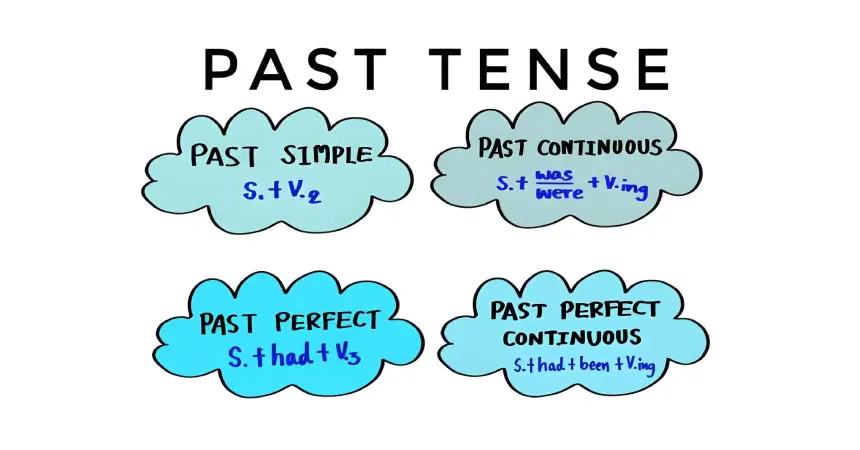 PAST TENSE
PAST SIMPLE
S. + V.2
PAST CONTINUOUS
S. + was/were + V.ing
PAST PERFECT
S. + had + V.3
PAST PERFECT
CONTINUOUS
S. + had + been + V.ing